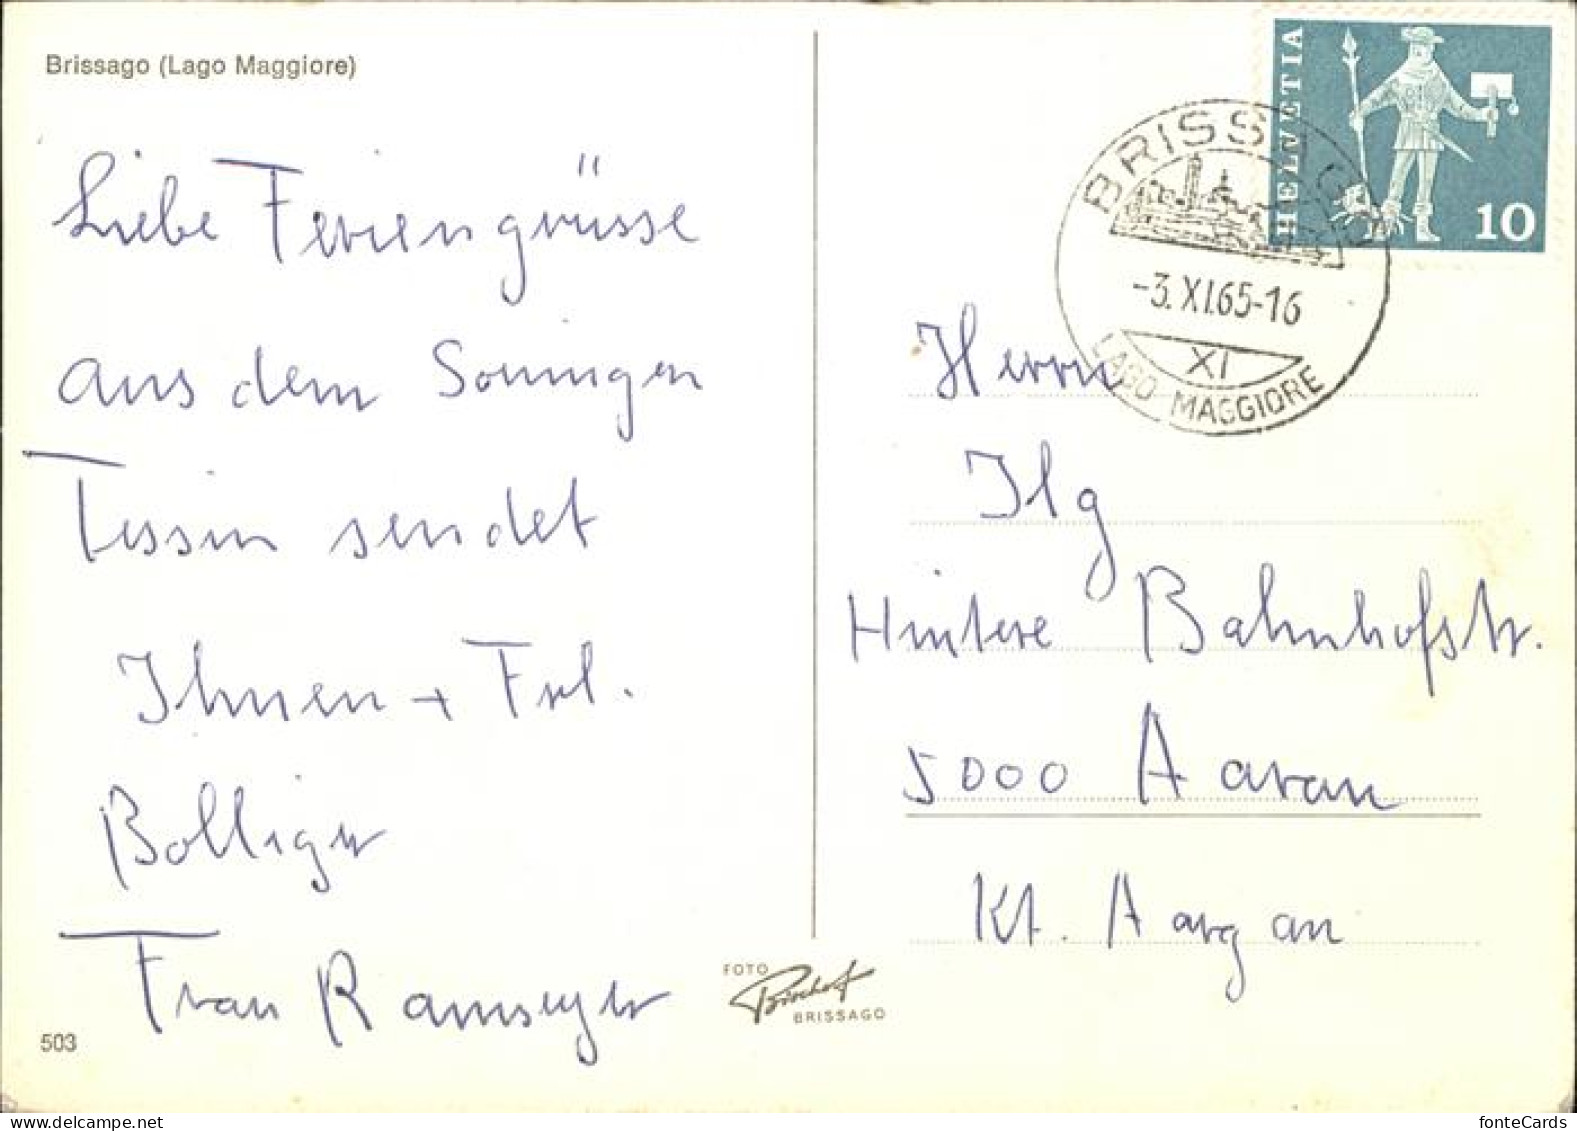 Brissago (Lago Maggiore)
Liebe Feriengrüsse
aus dem Sonnigen
Tessin sendet
Ihnen + Frl.
Bolliger
Frau Ramseyer
503
FOTO
Bischof
BRISSAGO
HELVETIA
10
BRISSAGO
-3.XI.65-16
XI
LAGO MAGGIORE
Herrn
Ilg
Hintere Bahnhofstr.
5000 Aarau
Kt. Aargau
fonteCards
delcampe.net